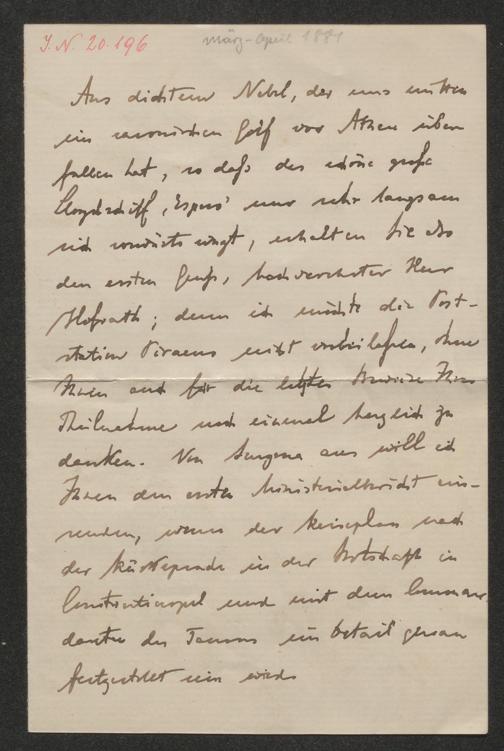 J. N. 20.196
März-April 1881
Aus dichtem Nebel, der uns mitten
im saronischen Golf vor Athen über
fallen hat, so daß das schöne große
Lloydschiff, nur sehr langsam
sich vorwärts wagt, erhalten Sie also
den ersten Gruß, hochverehrter Herr
Hofrath; denn ich möchte die Post-
station Piraeus nicht vorbeilassen, ohne
Ihnen auch für die letzten Beweise Ihrer
Theilnahme noch einmal herzlich zu
danken. Von Smyrna aus will ich
Ihnen den ersten Ministerialbericht ein-
senden, wenn der Reiseplan nach
der in der Botschaft in
Constantinopel und mit dem Comman
danten des Taurus im Detail genau
festgestellt sein wird.